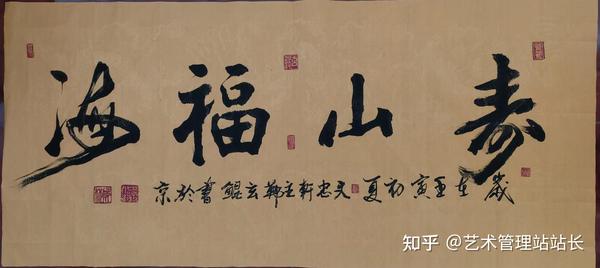 寿山福海
岁在壬寅初夏文忠轩主郑玄鲲书於京
知乎 @艺术管理站站长